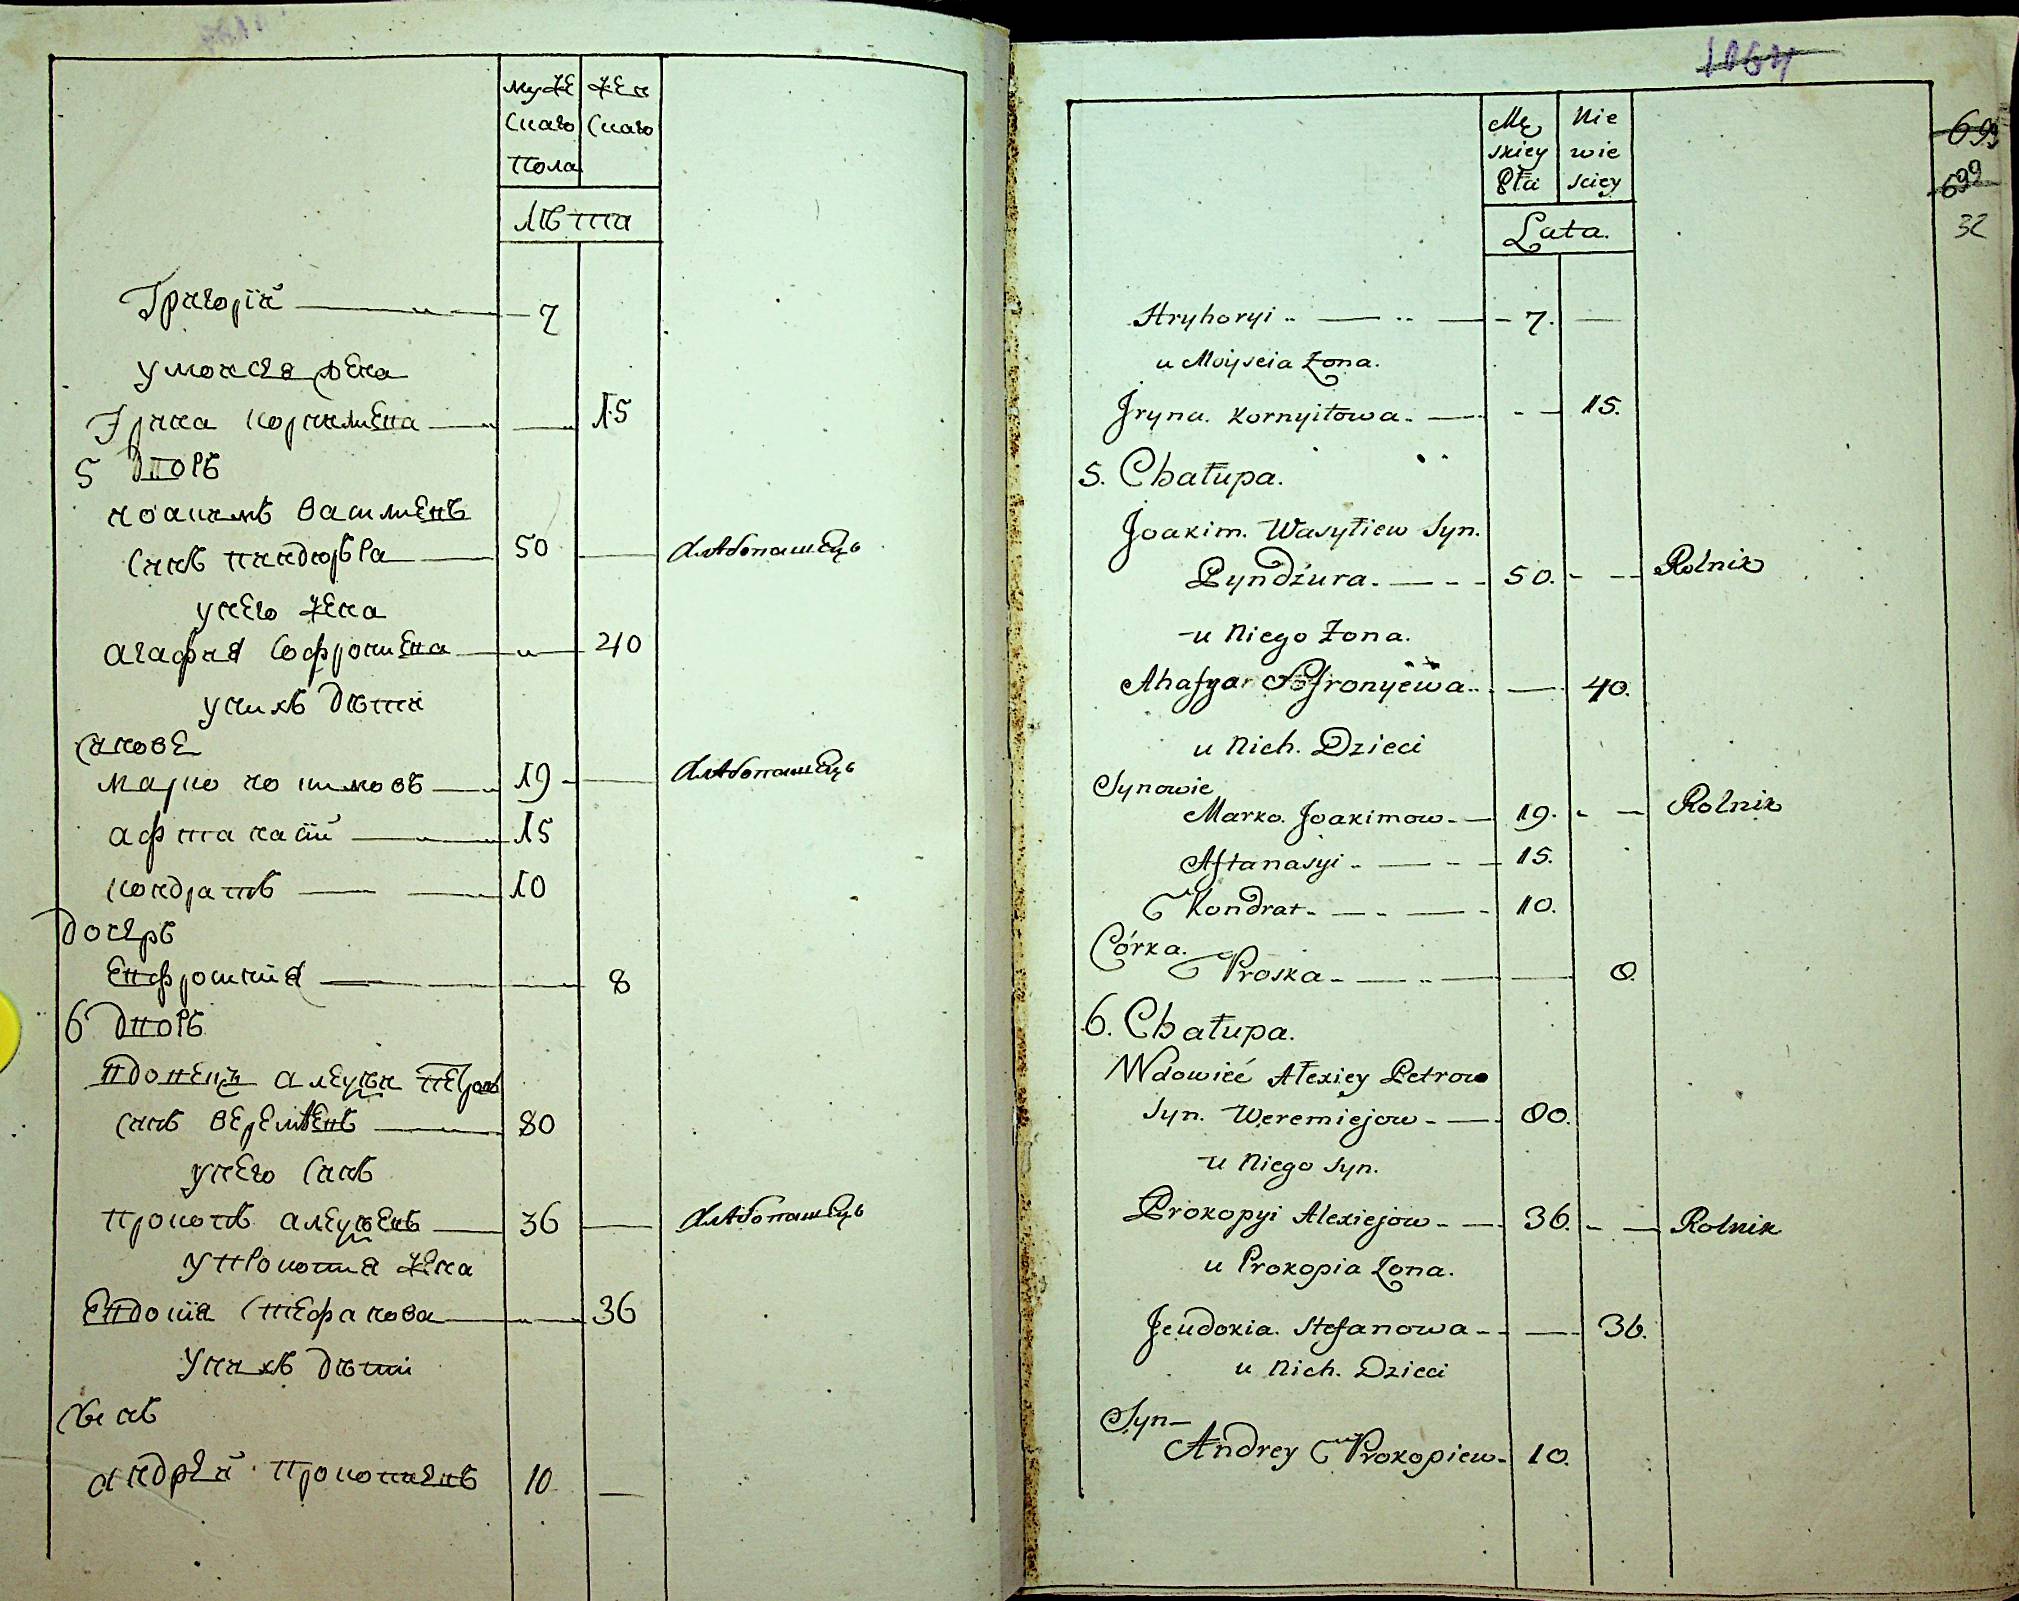 муже жен
скаго скаго
пола
лѣта
Григорій 7
у моисея жена
Ірина корнилиева 15
5 дворъ
иоакимъ василиевъ
синъ пиндюра 50 хлѣбопашецъ
у него жена
агафия софрониева 40
у нихъ дѣти
синове
марко иокимовъ 19 хлѣбопашецъ
афтанасій 15
кондратъ 10
дочерь
евфросинія 8
6 дворъ
вдовецъ алеѯѣй петровъ
синъ веремѣевъ 80
у него синъ
прокопъ алеѯѣевъ 36 хлѣбопашецъ
у прокопия жена
евдокия стефанова 36
у нихъ дѣти
сынъ
андрей прокопиевъ 10
1064
699
699
32
Mę Nie
skiey wie
Płci sciey
Lata.
Hryhoryi 7.
u Moyseia Żona.
Jryna. Kornyiłowa. 15.
5. Chałupa.
Joakim. Wasyłiew Syn.
Pyndżura. 50. Rolnik
u Niego Żona.
Ahafya Sofronyewa 40.
u Nich. Dzieci
Synowie
Marko. Joakimow. 19. Rolnik
Aftanasyi 15.
Kondrat. 10.
Córka.
Proska 8.
6. Chałupa.
Wdowiec Ałexiey Petrow
Syn. Weremiejow 80.
u Niego Syn.
Prokopyi Alexiejow 36. Rolnik
u Prokopia Żona.
Jeudokia. Stefanowa 36.
u Nich. Dzieci
Syn
Andrey Prokopiew 10.